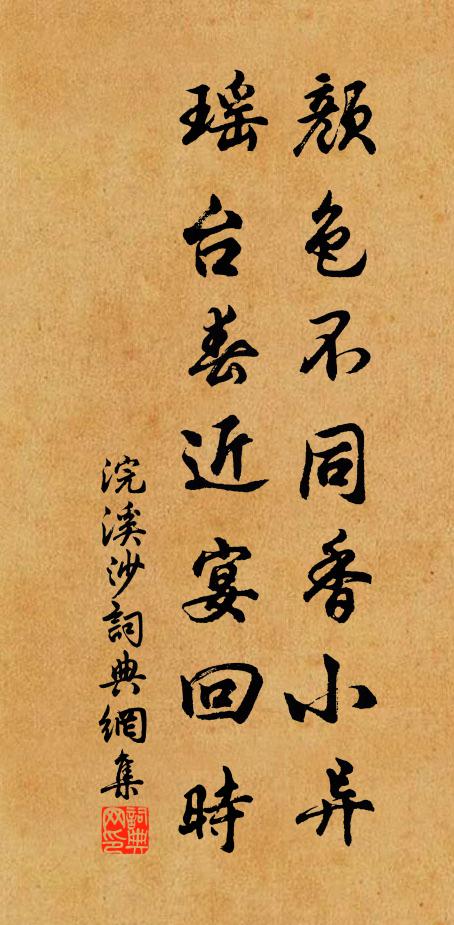 顔色不同香小异
瑶台春近宴回時
浣溪沙詞典網集
詞典网印